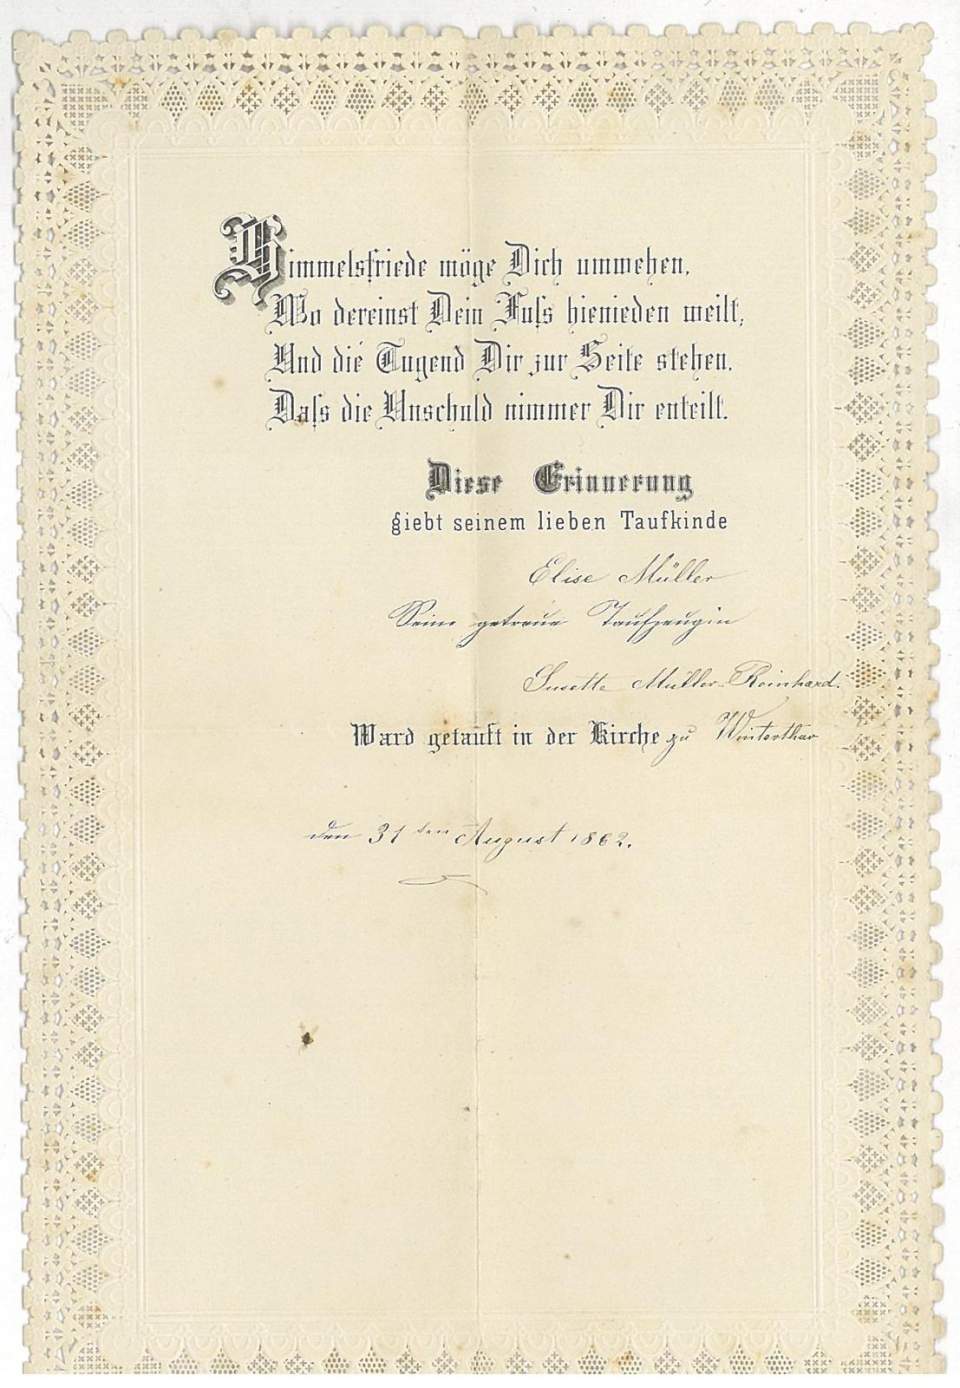 Himmelsfriede möge Dich umwehen,
Wo dereinst Dein Fuſs hienieden weilt;
Und die Tugend Dir zur Seite stehen,
Daſs die Unschuld nimmer Dir enteilt.
Diese Erinnerung
giebt seinem lieben Taufkinde
Elise Müller
Seine getreue Taufzeugin
Susette Müller-Reinhard.
Ward getauft in der Kirche zu Winterthur
den 31ten August 1862.